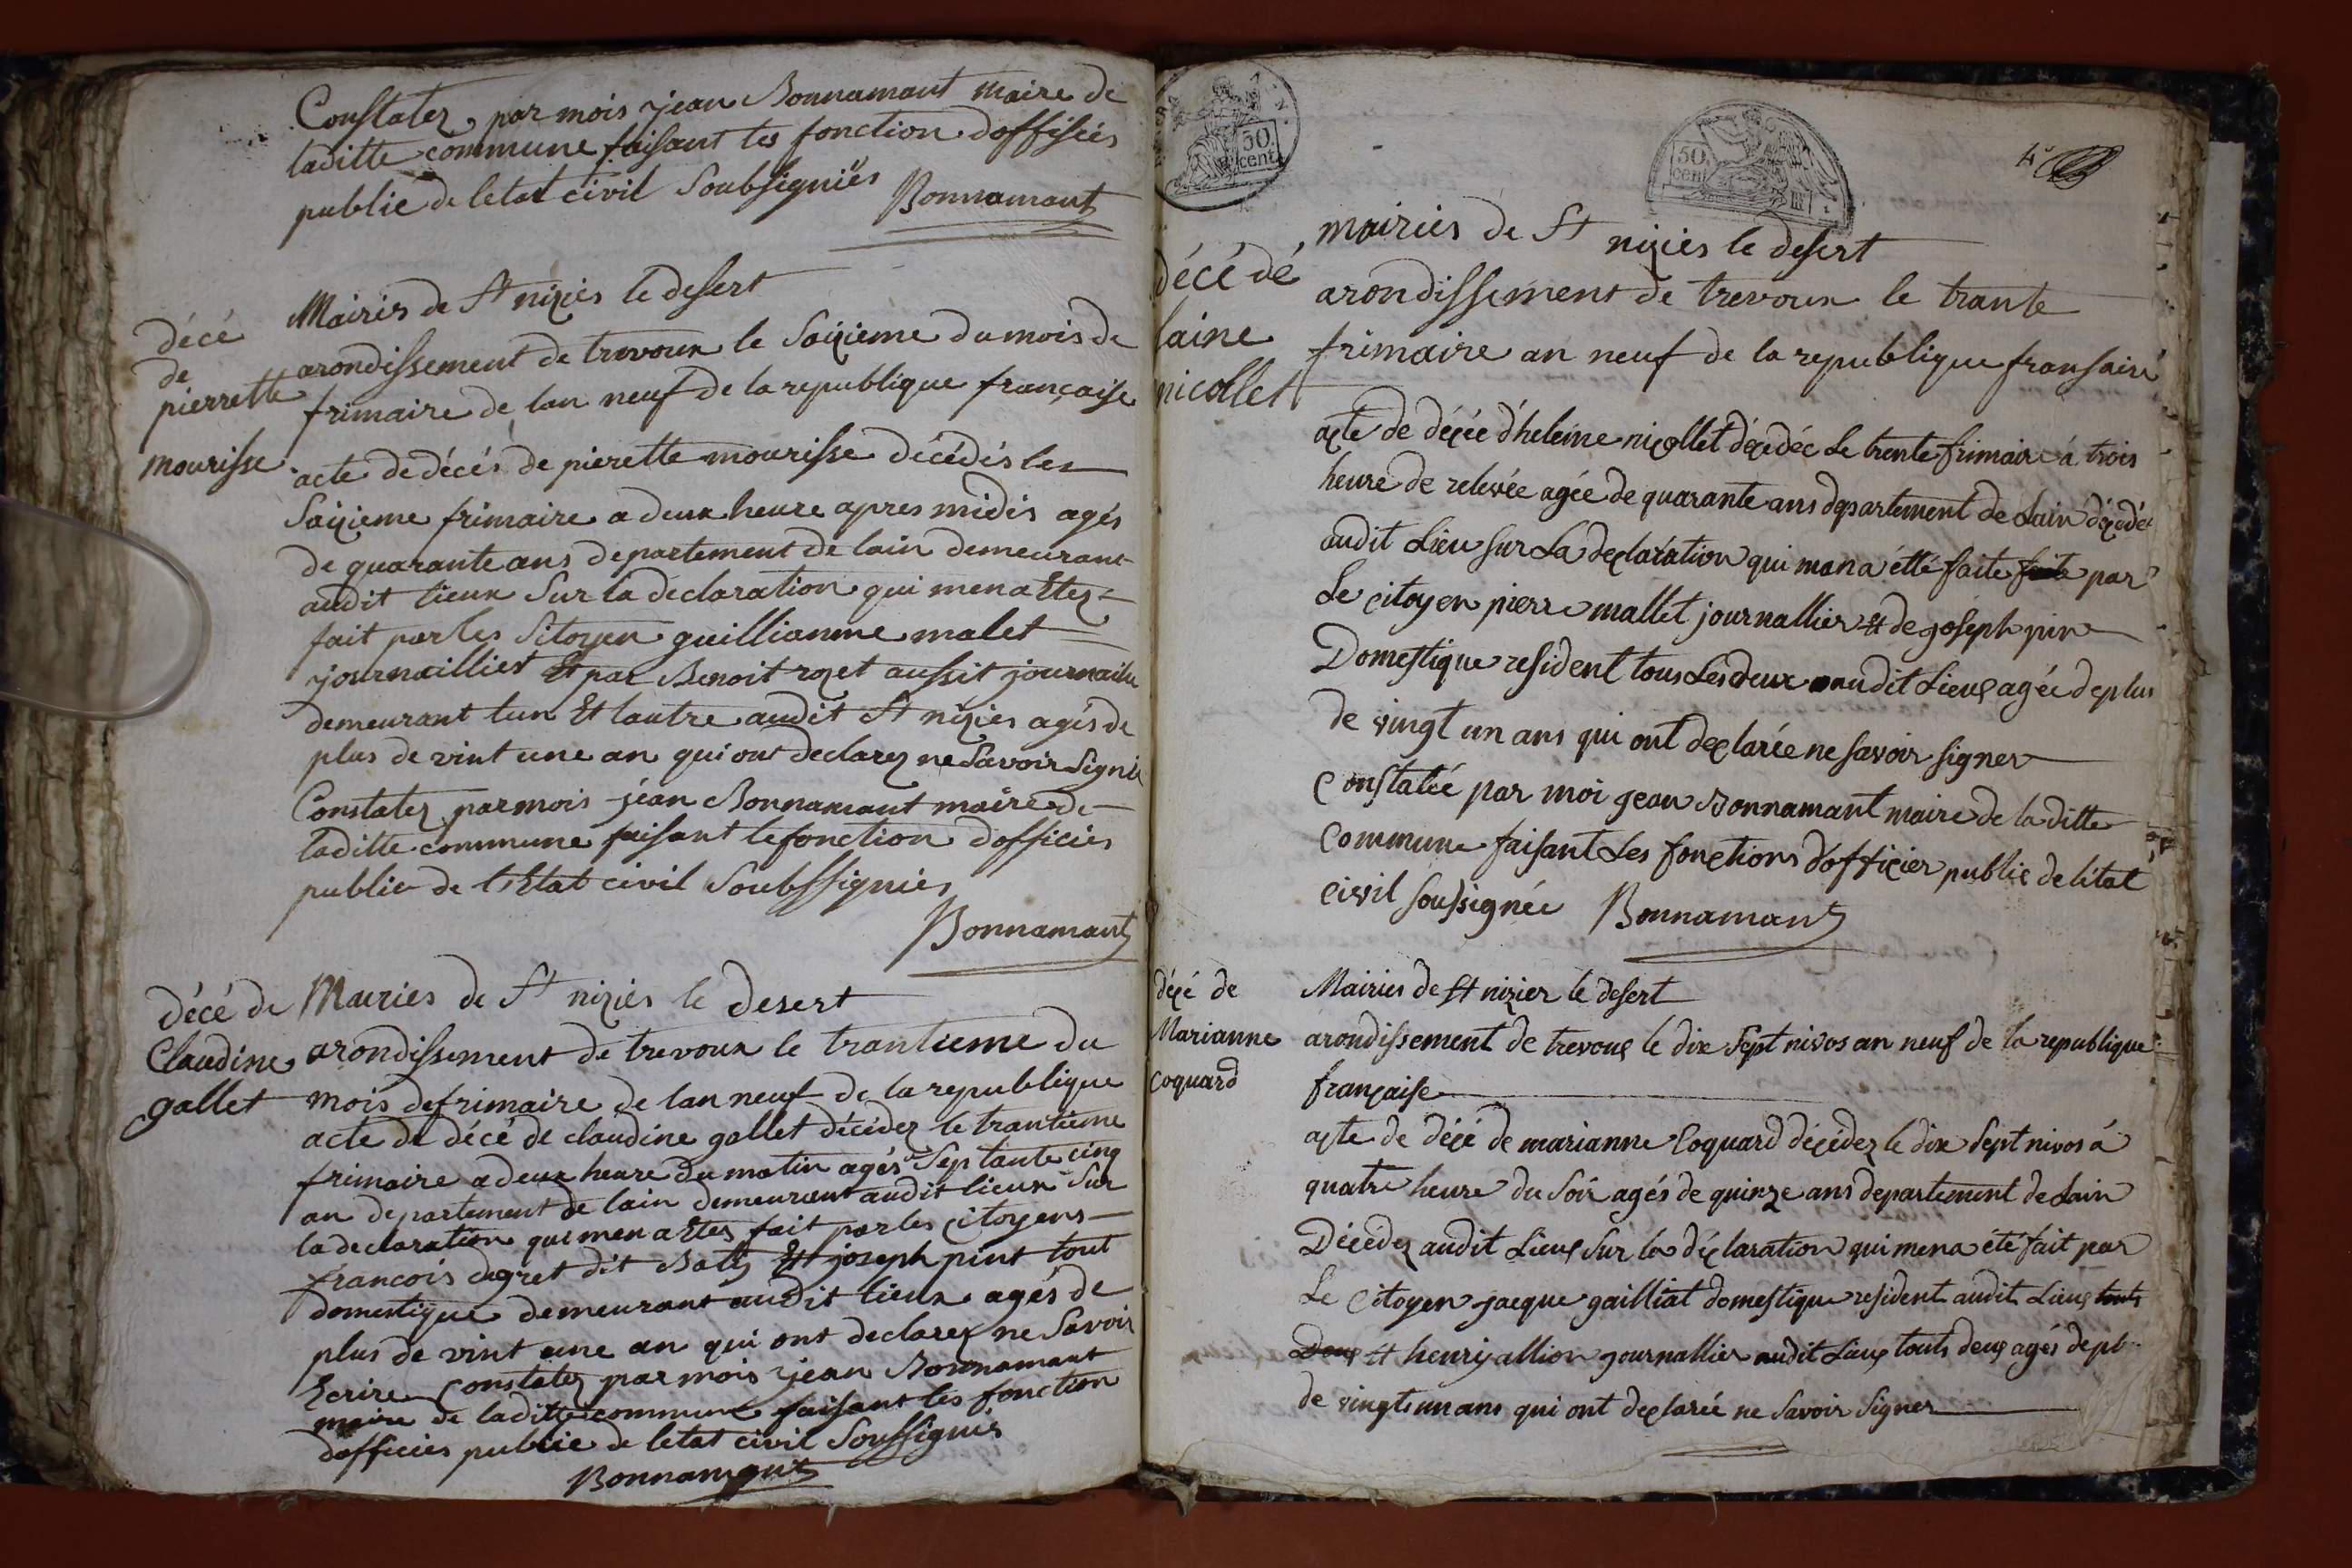 Constatez par mois jean Bonnamant maire de
laditte commune faisant les fonction doffisiés
publie de letat civil Soubsigniés
Bonnamant
décé
de
pierrette
mourisse
Mairies de St niziés le desert
arondissement de trevoux le Saizieme du mois de
frimaire de lan neuf de la republique française
acte de décés de pierette mourisse décédés les
Saizieme frimaire a deux heure apres midis agés
de quarante ans departement de lain demeurant
audit lieux Sur la declaration qui men a Etez
fait par les Sitoyen guillianme malet
journaillier Et par Benoit rozet aussit journailie
demeurant lun Et lautre audit St niziés agés de
plus de vint une an qui ont declarez ne Savoir Signier
Constatez par mois jean Bonnamant maire de
laditte commune faisant le fonction dofficiés
publie de l'Etat civil Soubssigniés
Bonnamant
décé de
Claudine
gallet
Mairies de St niziés le desert
arondissement de trevoux le trantieme du
mois de frimaire de lan neuf de la republique
acte de décé de claudine gallet décédez le trantieme
frimaire a deux heure du matin agés Septante cinq
an departement de lain demeurant audit lieux Sur
la declaration qui men a Etes fait par les citoyens
francois degret dit Bally Et joseph pint tout
domestique demeurant audit lieux agés de
plus de vint une an qui ont declarez ne Savoir
Ecrire Constatez par mois jean Bonnamant
maire de laditte commune faisant les fonction
dofficiés publie de letat civil Soussignés
Bonnamant
50.
cent.
50.
cent
décé dé
laine
nicollet
mairies de St niziés le desert
arondissement de trevoux le trante
frimaire an neuf de la republique fransaise
acte de décée d'heleine nicollet décédée Le trente frimaire á trois
heure de relevée agée de quarante ans departement de Lain décédée
audit Lieu sur La declaration qui mana étté faite faite par
Le citoyen pierre mallet journallier Et de joseph pin
Domestique resident tous Les deux audit Lieux agée de plus
de vingt un ans qui ont declarée ne savoir signer
Constatée par moi jean Bonnamant maire de la ditte
Commune faisant Les fonctions d'officier public de létat
civil soussignée Bonnamant
décé de
Marianne
Coquard
Mairies de St nizier le desert
arondissement de trevoux le dix Sept nivos an neuf de la republique
française
acte de décé de marianne Coquard décédez le dix Sept nivos á
quatre heure du Soir agés de quinze ans departement de Lain
Décédez audit Lieux Sur la déclaration qui mena été fait par
Le Citoyen jacque gailliat domestique resident audit Lieux touts
Deux Et henry allion journallier audit Lieux touts deux agés de pl
de vingt un ans qui ont declarée ne Savoir Signer